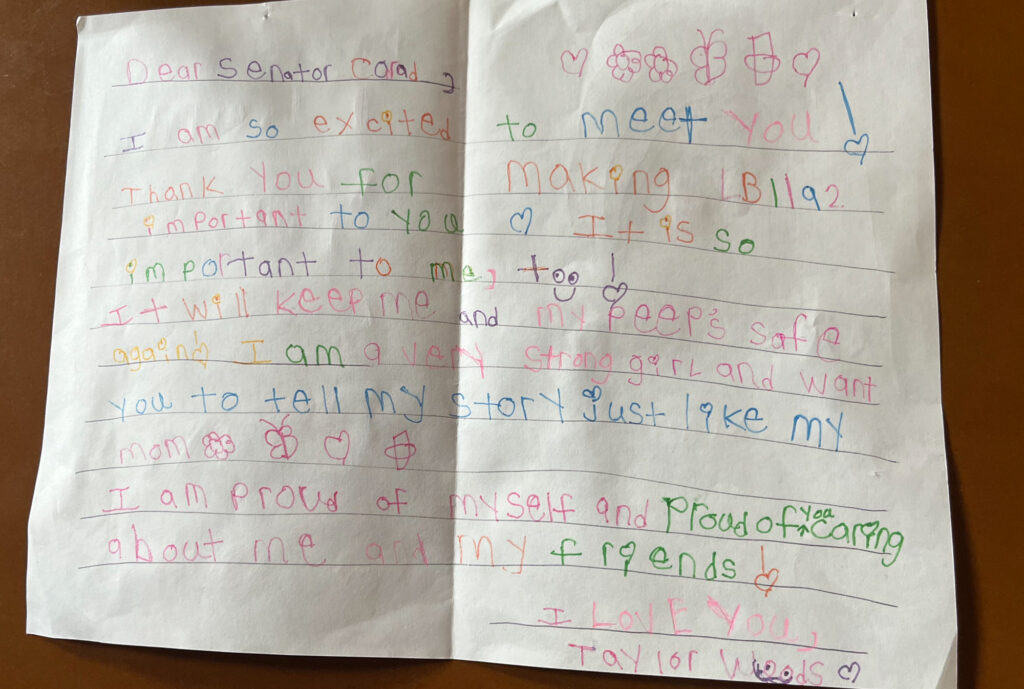 Dear Senator Corad,
I am so excited to meet you!
Thank you for making LB1192.
important to you It is so
important to me, too!
It will keep me and my peep's safe
again! I am a very strong girl and want
you to tell my story just like my
mom
I am proud of myself and Proud of you caring
about me and my friends!
I Love You,
Taylor Woods